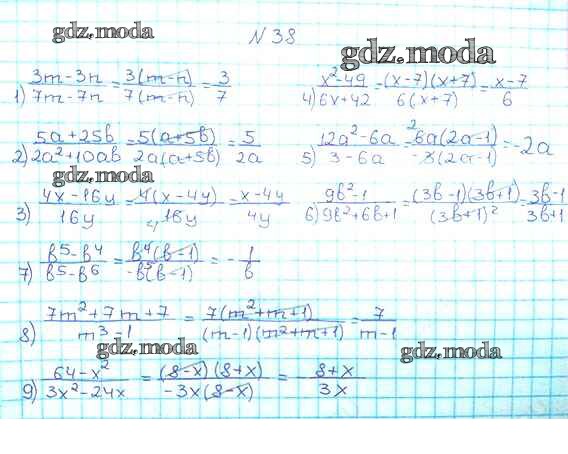 gdz.moda
№ 38
gdz.moda
1) (3m-3n)/(7m-7n) = (3(m-n))/(7(m-n)) = 3/7
4) (x²-49)/(6x+42) = ((x-7)(x+7))/(6(x+7)) = (x-7)/6
2) (5a+25b)/(2a²+10ab) = (5(a+5b))/(2a(a+5b)) = 5/(2a)
5) (12a²-6a)/(3-6a) = (²6a(2a-1))/(-3(2a-1)) = -2a
gdz.moda
3) (4x-16y)/(16y) = (4(x-4y))/(₄16y) = (x-4y)/(4y)
6) (9b²-1)/(9b²+6b+1) = ((3b-1)(3b+1))/((3b+1)²) = (3b-1)/(3b+1)
7) (b⁵-b⁴)/(b⁵-b⁶) = (b⁴(b-1))/(-b⁵(b-1)) = -1/b
8) (7m²+7m+7)/(m³-1) = (7(m²+m+1))/((m-1)(m²+m+1)) = 7/(m-1)
gdz.moda
gdz.moda
9) (64-x²)/(3x²-24x) = ((8-x)(8+x))/(-3x(8-x)) = (8+x)/(3x)